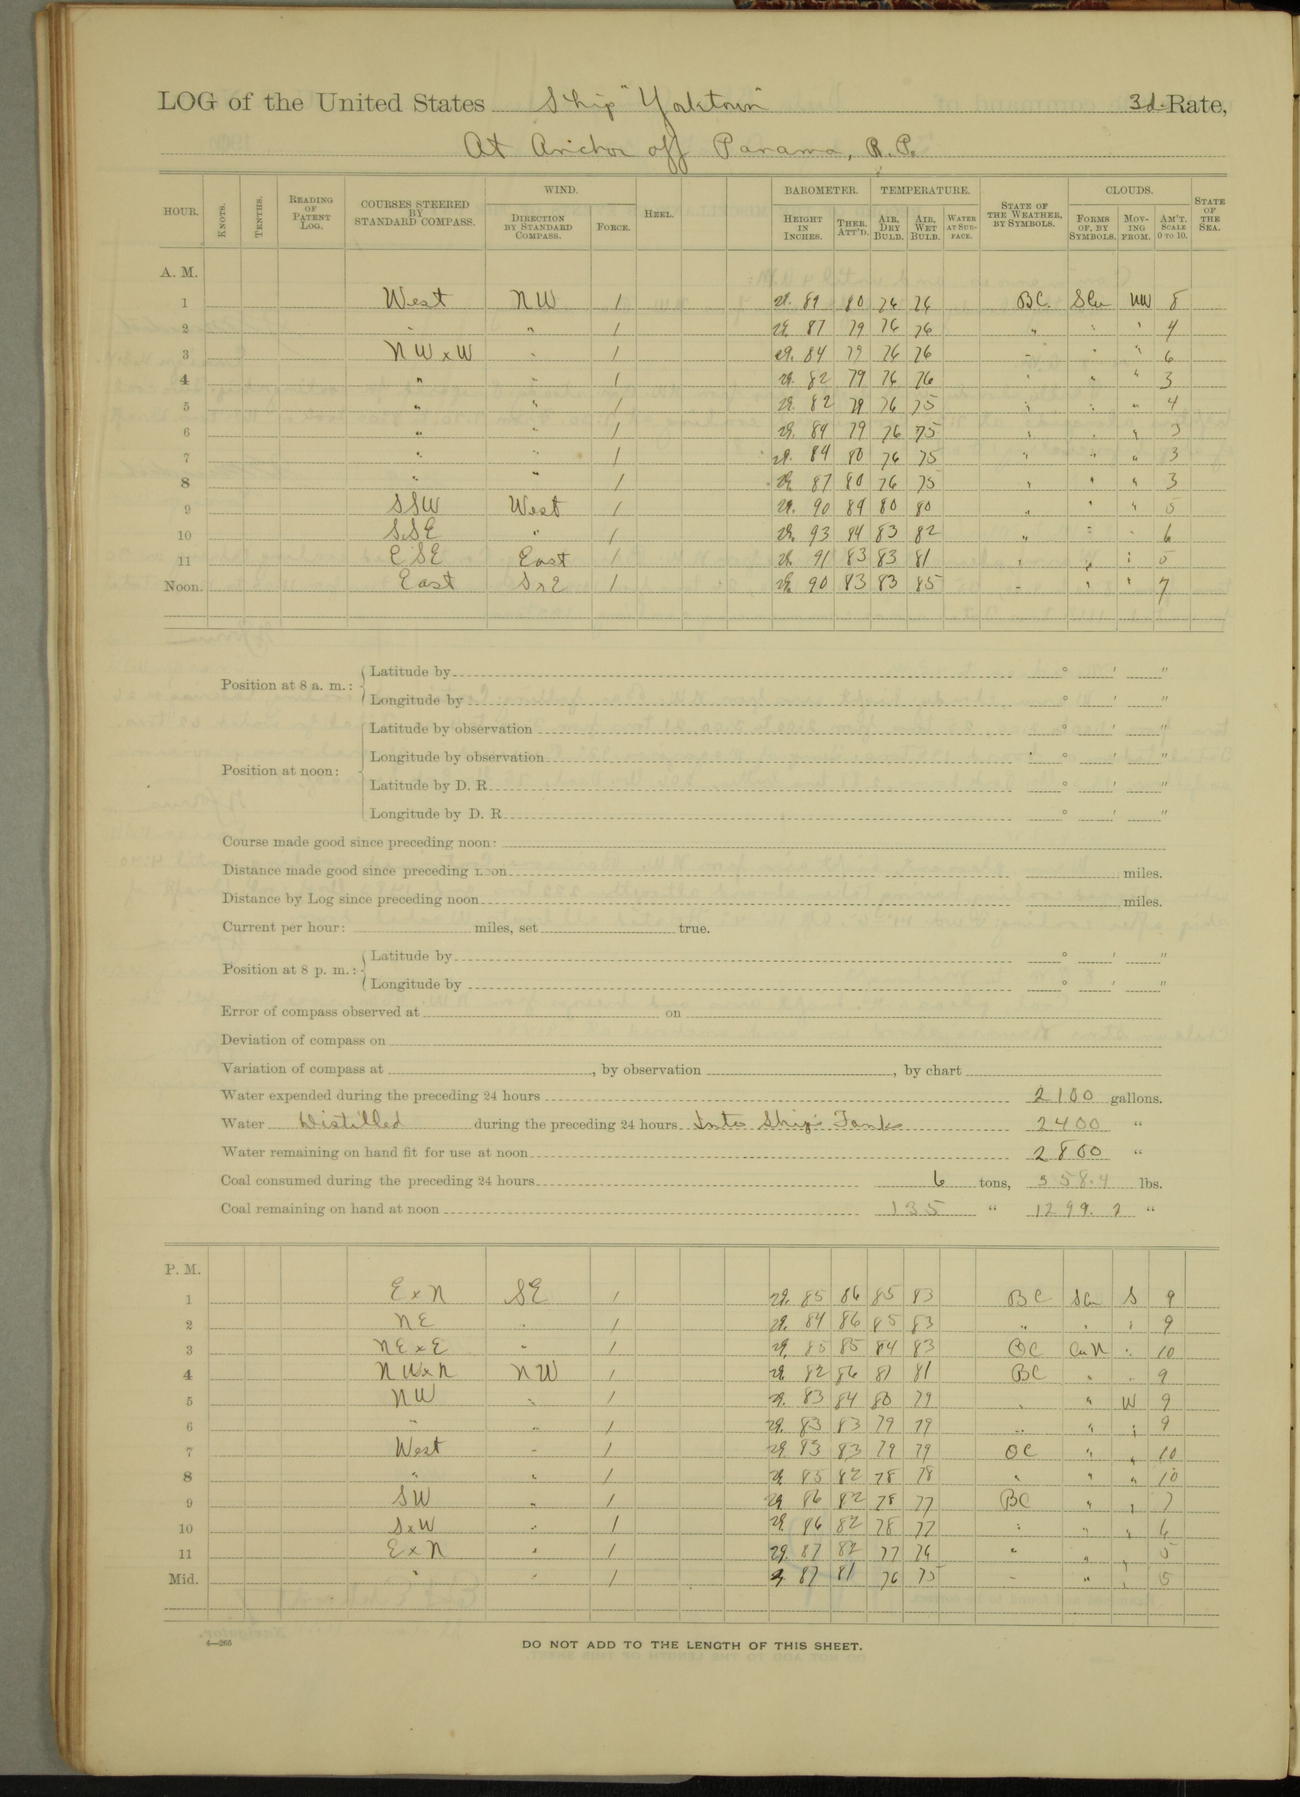 LOG of the United States Ship "Yorktown" 3d. Rate,
At Anchor off Panama, R.P.
HOUR. KNOTS. TENTHS. READING OF PATENT LOG. COURSES STEERED BY STANDARD COMPASS. WIND. DIRECTION BY STANDARD COMPASS. FORCE. HEEL. BAROMETER. HEIGHT IN INCHES. THER. ATT'D. TEMPERATURE. AIR, DRY BULB. AIR, WET BULB. WATER AT SURFACE. STATE OF THE WEATHER, BY SYMBOLS. CLOUDS. FORMS OF, BY SYMBOLS. MOVING FROM. AM'T. SCALE 0 TO 10. STATE OF THE SEA.
A. M.
1 West NW 1 29. 89 80 76 76 BC. SCu NW 5
2 " " 1 29. 87 79 76 76 " " " 4
3 NWxW " 1 29. 84 79 76 76 " " " 6
4 " " 1 29. 82 79 76 76 " " " 3
5 " " 1 29. 82 79 76 75 " " " 4
6 " " 1 29. 84 79 76 75 " " " 3
7 " " 1 29. 84 80 76 75 " " " 3
8 " " 1 29. 87 80 76 75 " " " 3
9 SSW West 1 29. 90 84 80 80 " " " 5
10 SSE " 1 29. 93 84 83 82 " " " 6
11 ESE East 1 29. 91 83 83 81 " " " 5
Noon. East SxE 1 29. 90 83 83 85 " " " 7
Position at 8 a. m.: Latitude by ° ′ ″
Longitude by ° ′ ″
Latitude by observation ° ′ ″
Position at noon: Longitude by observation ° ′ ″
Latitude by D. R. ° ′ ″
Longitude by D. R. ° ′ ″
Course made good since preceding noon:
Distance made good since preceding noon miles.
Distance by Log since preceding noon miles.
Current per hour: miles, set true.
Position at 8 p. m.: Latitude by ° ′ ″
Longitude by ° ′ ″
Error of compass observed at on
Deviation of compass on
Variation of compass at , by observation , by chart
Water expended during the preceding 24 hours 2100 gallons.
Water Distilled during the preceding 24 hours Into Ship's Tanks 2400 "
Water remaining on hand fit for use at noon 2800 "
Coal consumed during the preceding 24 hours 6 tons, 358.4 lbs.
Coal remaining on hand at noon 135 " 1299.2 "
P. M.
1 ExN SE 1 29. 85 86 85 83 BC SCu S 9
2 NE " 1 29. 84 86 85 83 " " " 9
3 NExE " 1 29. 85 85 84 83 OC CuN " 10
4 NWxN NW 1 29. 82 86 81 81 BC " " 9
5 NW " 1 29. 83 84 80 79 " " W 9
6 " " 1 29. 83 83 79 79 " " " 9
7 West " 1 29. 83 83 79 79 OC " " 10
8 " " 1 29. 85 82 78 78 " " " 10
9 SW " 1 29. 86 82 78 77 BC " " 7
10 SxW " 1 29. 86 82 78 77 " " " 6
11 ExN " 1 29. 87 82 77 76 " " " 5
Mid. " " 1 29. 87 81 76 75 " " " 5
4—265
DO NOT ADD TO THE LENGTH OF THIS SHEET.